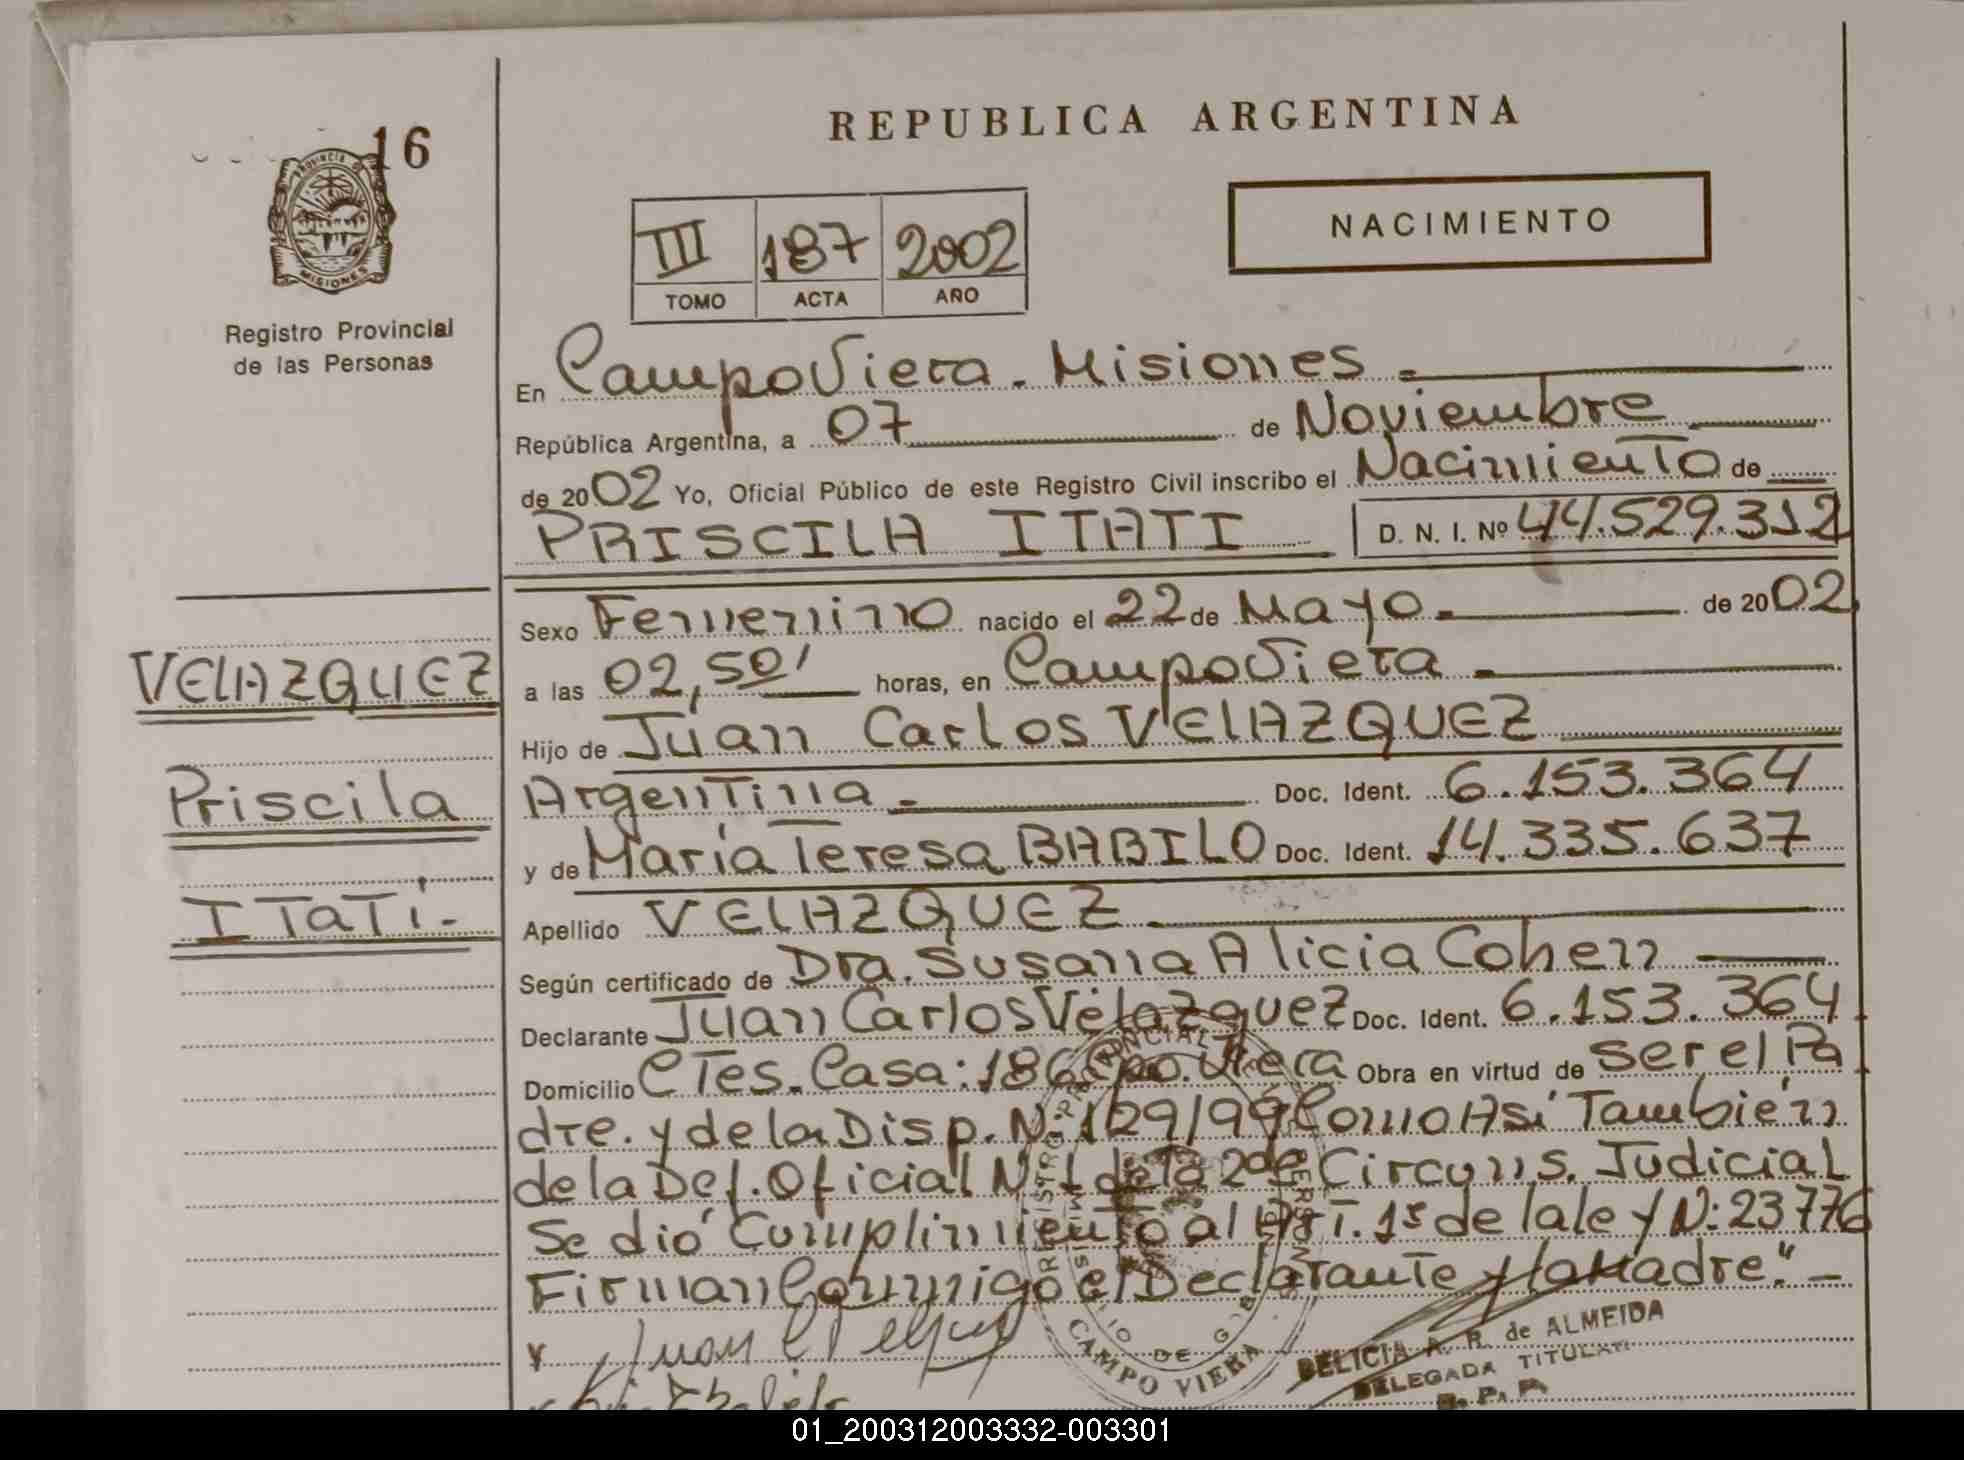 16
PROVINCIA DE
MISIONES
Registro Provincial
de las Personas
REPUBLICA ARGENTINA
NACIMIENTO
III 187 2002
TOMO ACTA AÑO
En Campo Viera - Misiones
República Argentina, a 07 de Noviembre
de 2002 Yo, Oficial Público de este Registro Civil inscribo el Nacimiento de
PRISCILA ITATI D. N. I. Nº 44.529.312
Sexo Femenino nacido el 22 de Mayo de 2002
a las 02,50' horas, en Campo Viera
Hijo de Juan Carlos VELAZQUEZ
Argentina Doc. Ident. 6.153.364
y de María Teresa BABILO Doc. Ident. 14.335.637
Apellido VELAZQUEZ
Según certificado de Dra. Susana Alicia Cohen
Declarante Juan Carlos Velazquez Doc. Ident. 6.153.364
Domicilio CTes. Casa: 186 Cpo. Viera Obra en virtud de ser el Pa
dre. y de la Disp. N: 129/99 Como Así También
de la Def. Oficial N: 1 de la 2da Circuns. Judicial
Se dió Cumplimiento al Art. 1º de la ley N: 23776
Firman Conmigo el Declarante y la Madre." -
VELAZQUEZ
Priscila
ITatí.-
REGISTRO PROVINCIAL
CAMPO VIERA
DELICIA A. R. de ALMEIDA
DELEGADA TITULAR
01_200312003332-003301